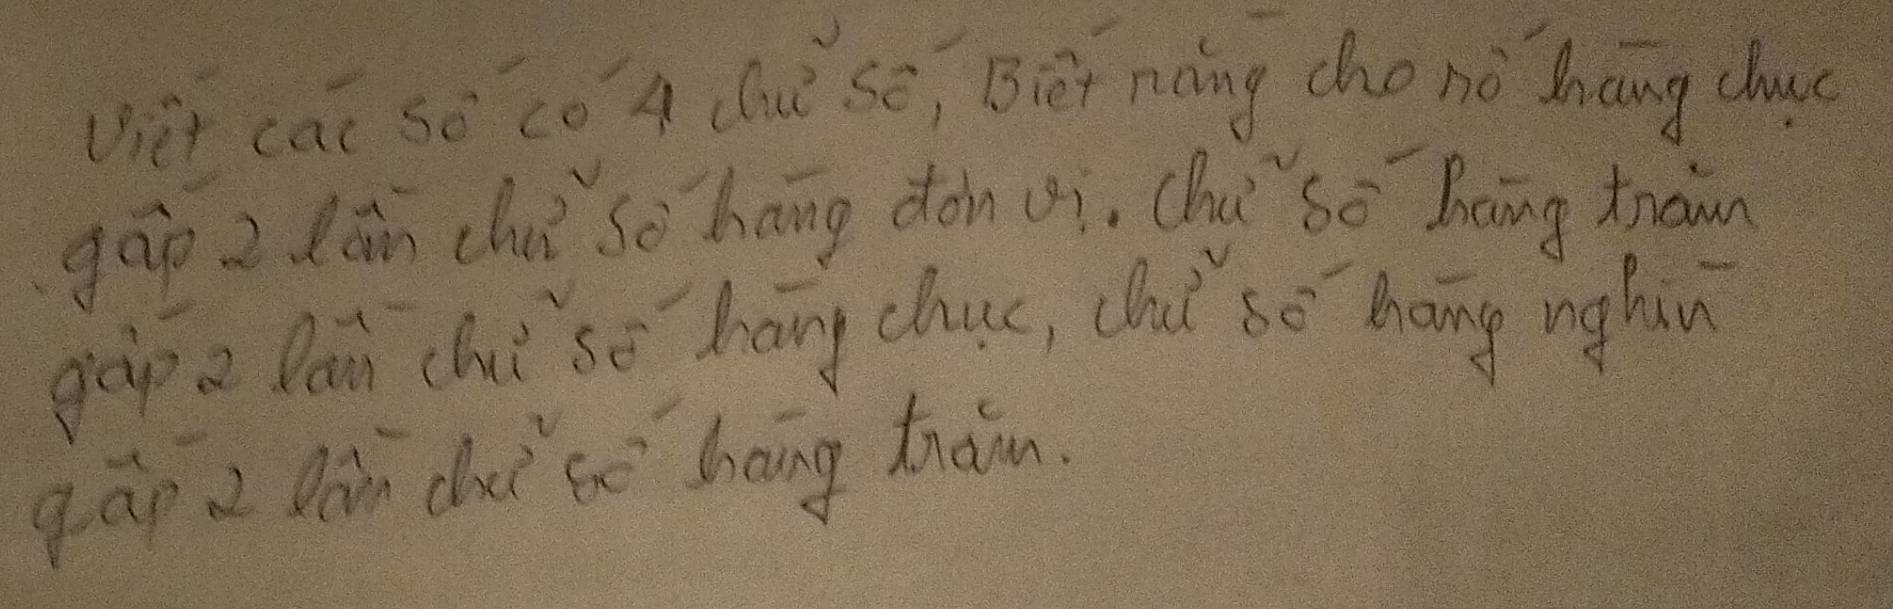 Viết các số có 4 chữ số, Biết rằng cho số hàng chục
gấp 2 lần chữ số hàng đơn vị. Chữ số hàng trăm
gấp 2 lần chữ số hàng chục, chữ số hàng nghìn
gấp 2 lần chữ số hàng trăm.